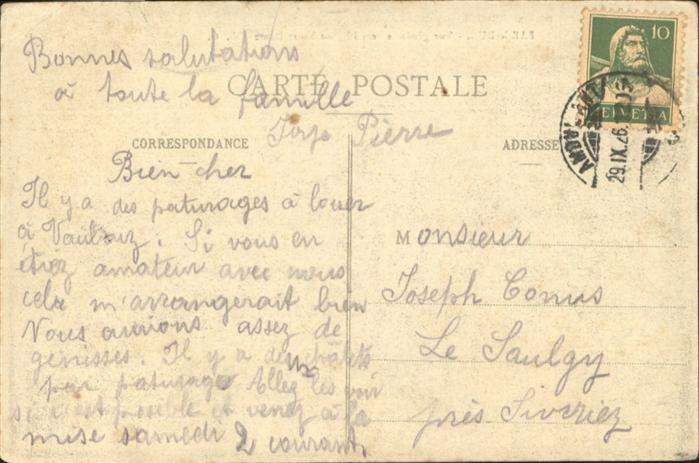 Bonnes salutations
à toute la famille
CARTE POSTALE
Pierre
CORRESPONDANCE
ADRESSE
10
HELVETIA
29.IX.26.
Bien cher
Il y a des paturages à louer
à Vaulruz. Si vous en
étiez amateur avec nous
cela m'arrangerait bien
Vous aurions assez de
genisses. Il y a des
par paturage Allez les voir
si c'est posible et venez à la
mise samedi 2 courant,
Monsieur
Joseph Conus
Le Saulgy
près Siviriez